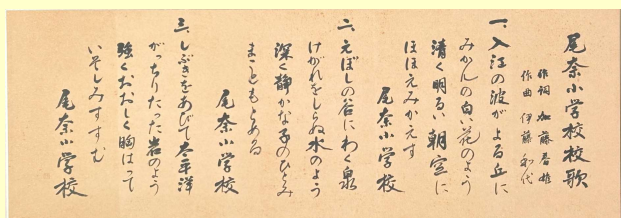 尾奈小学校校歌
作詞 加藤吾雄
作曲 伊藤和代
一、入江の波がよる丘に
みかんの白い花のよう
清く明るい朝空に
ほほえみかえす
尾奈小学校
二、えぼしの谷にわく泉
けがれをしらぬ水のよう
深く静かな子のひとみ
まこともとめる
尾奈小学校
三、しぶきをあびて太平洋
がっちりたった岩のよう
強くおおしく胸はって
いそしみすすむ
尾奈小学校